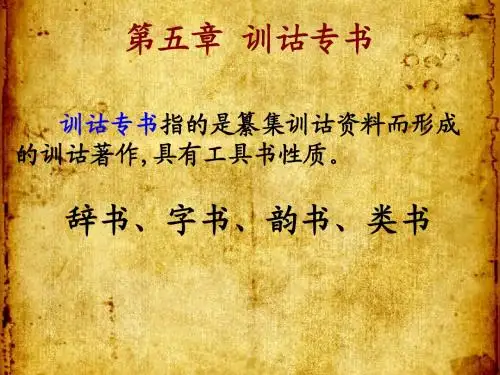 第五章 训诂专书
训诂专书指的是纂集训诂资料而形成
的训诂著作,具有工具书性质。
辞书、字书、韵书、类书